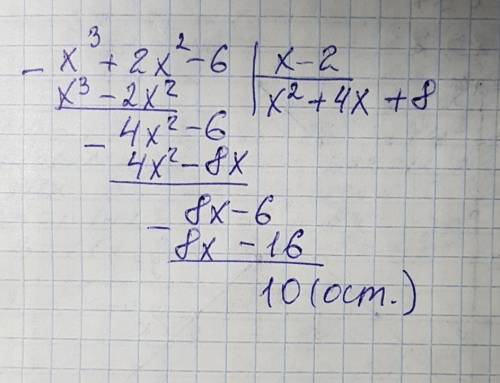 - x³ + 2x² - 6 | x - 2
x³ - 2x² | x² + 4x + 8
- 4x² - 6
4x² - 8x
- 8x - 6
8x - 16
10 (ост.)